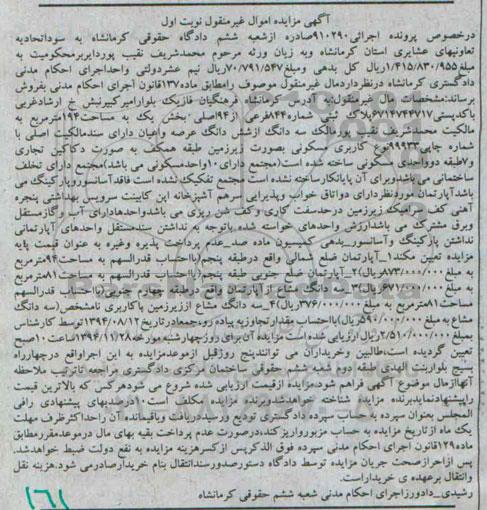 آگهی مزایده اموال غیرمنقول نوبت اول
درخصوص پرونده اجرائی۹۱۰۲۹۰صادره ازشعبه ششم دادگاه حقوقی کرمانشاه به سوداتحادیه
تعاونیهای عشایری استان کرمانشاه وبه زیان ورثه مرحوم محمدشریف نقیب پوردایربرمحکومیت به
مبلغ۱/۴۱۵/۸۳۰/۹۵۵ریال کل بدهی ومبلغ۷۰/۷۹۱/۵۴۷ریال نیم عشردولتی واحداجرای احکام مدنی
دادگستری کرمانشاه درنظرداردمال غیرمنقول موصوف رامطابق ماده۱۳۷قانون اجرای احکام مدنی بفروش
برساند:مشخصات مال غیرمنقول:به آدرس کرمانشاه فرهنگیان فازیک بلوارامیرکبیرنبش خ ارشادغربی
باکدپستی۶۷۱۴۷۴۴۷۱۷پلاک ثبتی شماره۱۴۴فرعی از۹۴اصلی بخش یک به مساحت۱۹۴مترمربع به
مالکیت محمدشریف نقیب پورمالک سه دانگ ازشش دانگ عرصه واعیان دارای سندمالکیت اصلی با
شماره چاپی۹۹۹۳۳نوع کاربری مسکونی بصورت زیرزمین طبقه همکف به صورت دکاکین تجاری
و۷طبقه دوواحدی مسکونی ساخته شده است(مجتمع دارای۱۰واحدمسکونی می باشد)مجتمع دارای تخلف
ساختمانی می باشدوبرای آن پایانکارساخته نشده است مجتمع تفکیک نشده است فاقدآسانسوروپارکینگ می
باشدآپارتمان موردنظردارای دواتاق خواب وپذیرایی سرهم آشپزخانه اپن کابینت سرویس بهداشتی پنجره
آهنی کف سرامیک زیرزمین درحدسفت کاری وکف شن ریزی می باشدواحدهادارای آب وگازمستقل
وبرق مشترک می باشدارزش واحدهای خواده شده باتوجه به نداشتن سندمستقل واحدهای آپارتمانی
نداشتن پارکینگ وآسانسور_بدهی کمیسیون ماده صد_عدم پرداخت پذیره وغیره به عنوان قیمت پایه
مزایده تعیین مکند۱_آپارتمان ضلع شمالی واقع درطبقه پنجم(بااحتساب قدرالسهم به مساحت۹۴مترمربع
به مبلغ۸۷۳/۰۰۰/۰۰۰ریال)۲_آپارتمان ضلع جنوبی طبقه پنجم(بااحتساب قدرالسهم به مساحت۸۱مترمربع
به مبلغ۶۷۱/۰۰۰/۰۰۰ریال)۳_سه دانگ مشاع ازآپارتمان واقع درطبقه چهارم جنوبی(بااحتساب قدرالسهم
مساحت۸۱مترمربع به مبلغ۳۷۶/۰۰۰/۰۰۰ریال)۴_سه دانگ مشاع اززیرزمین باکاربری نامشخص(سه دانگ
مشاع به مبلغ۵۹۰/۰۰۰/۰۰۰ریال)بااحتساب مقدارتجاوزبه پیاده رو،جمعادرتاریخ۱۳۹۴/۰۸/۱۲توسط کارشناس
بمبلغ۲/۵۱۰/۰۰۰/۰۰۰ریال ارزیابی شده است مزایده آن برای روزچهارشنبه مورخه۱۳۹۴/۱۱/۲۸ساعت۱۰صبح
تعیین گردیده است،طالبین وخریداران می توانندپنج روزقبل ازموعدمزایده به این اجراواقع درچهارراه
بسیج بلواربنت الهدی طبقه دوم شعبه ششم حقوقی ساختمان مرکزی دادگستری مراجعه تاترتیب ملاحظه
آنهاازمال موضوع آگهی فراهم شود.مزایده ازقیمت ارزیابی شده شروع می شودوهرکس که بالاترین قیمت
راپیشنهادنمایدبرنده مزایده شناخته خواهدشدبرنده مزایده مکلف است۱۰درصدبهای پیشنهادی رافی
المجلس بعنوان سپرده به حساب سپرده دادگستری تودیع ورسیددریافت وباقیمانده آن راحداکثرظرف مهلت
یک ماه ازتاریخ مزایده به حساب مزبورواریزکند،درصورت عدم پرداخت بقیه بهای مال درموعدمقررمطابق
ماده۱۲۹قانون اجرای احکام مدنی سپرده فوق الذکرپس ازکسرهزینه مزایده به نفع دولت ضبط خواهدشد.
پس ازاحرازصحت جریان مزایده توسط دادگاه دستورصدورسندانتقال بنام خریدارصادرمی شود.هزینه نقل
وانتقال برعهده ی خریداراست.
رشیدی_دادورزاجرای احکام مدنی شعبه ششم حقوقی کرمانشاه
۱۶۱